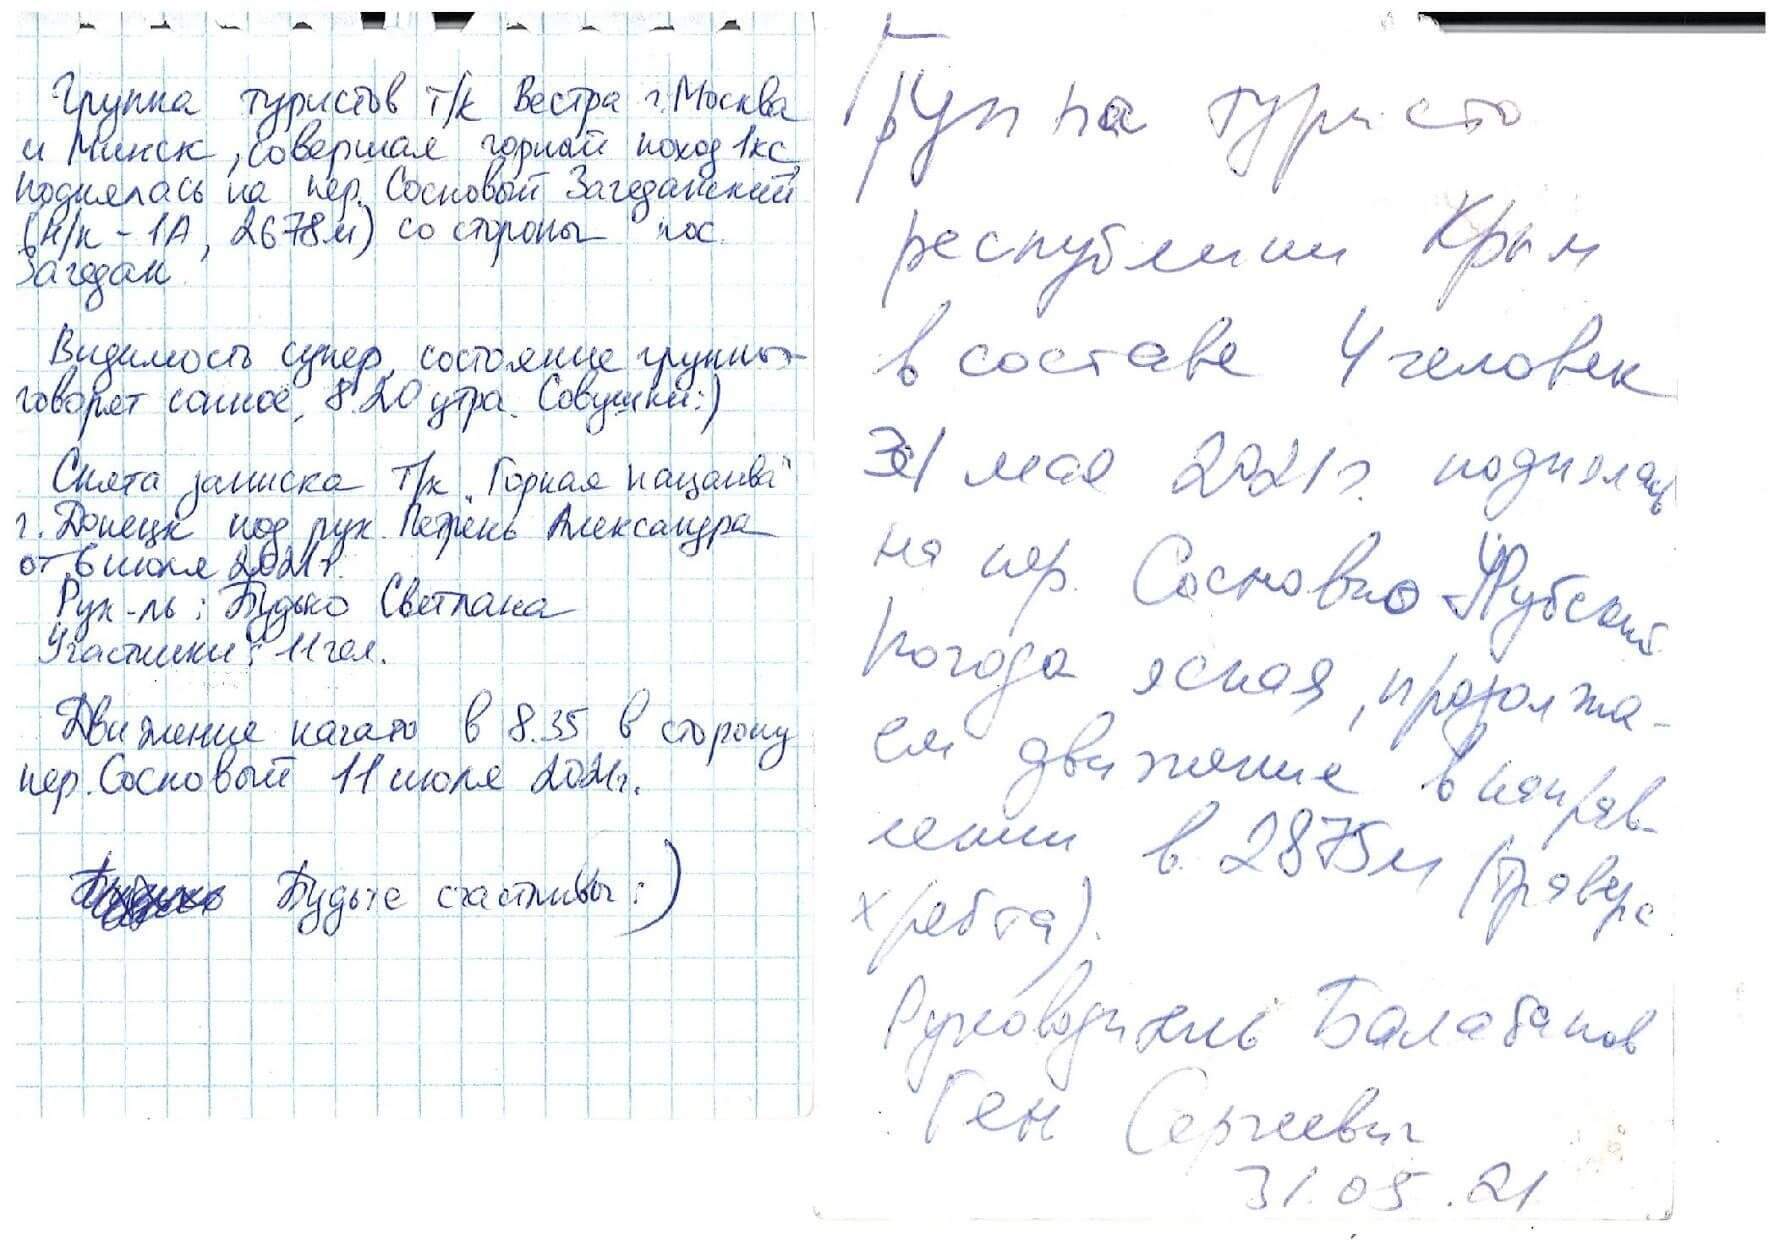 Группа туристов т/к Вестра г. Москва
и Минск, совершая горный поход 1кс,
поднялась на пер. Сосновый Загеданский
(н/к - 1А, 2678м) со стороны пос.
Загедан.
Видимость супер, состояние группы
говорят сонное, 8.20 утра. Совушки:)
Снята записка т/к "Горная пацанва"
г. Донецк под рук. Александра
от 6 июля 2021г.
Рук-ль: Будько Светлана
Участники: 11 чел.
Движение начато в 8.35 в сторону
пер. Сосновый 11 июля 2021г.
Будьте счастливы:)
Группа туристо
республики Крым
в составе 4 человек
31 мая 2021г. поднялась
на пер.
Погода ясная, продолжа-
ем движение в направ-
лении в. 2875м (траверс
хребта).
Руководитель Балабанов
Ген Сергеевич
31.05.21